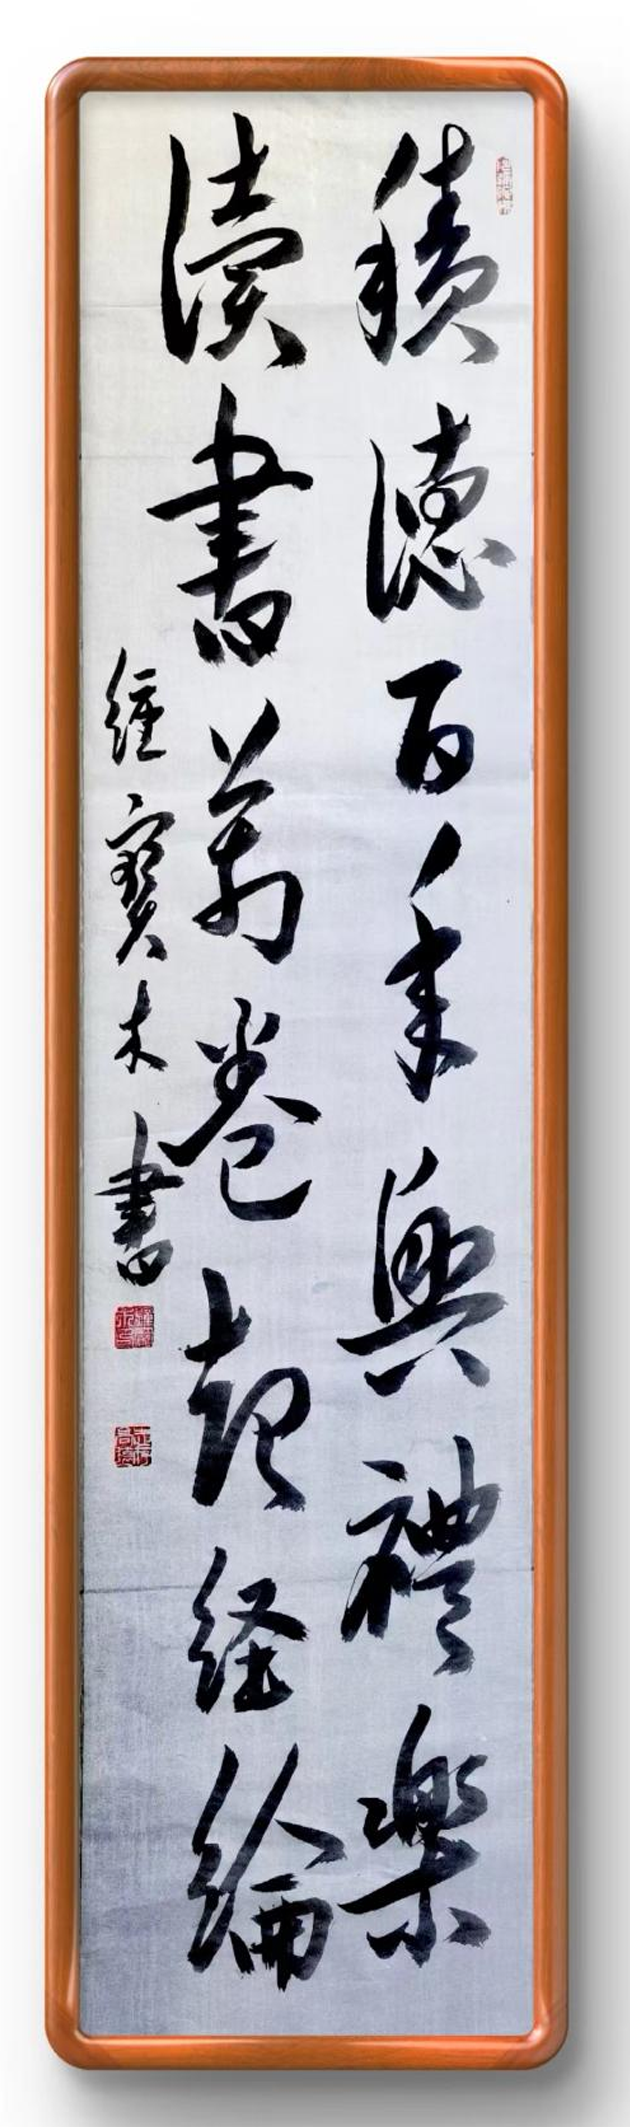 積德百年興禮樂
讀書萬卷起經綸
寶木書